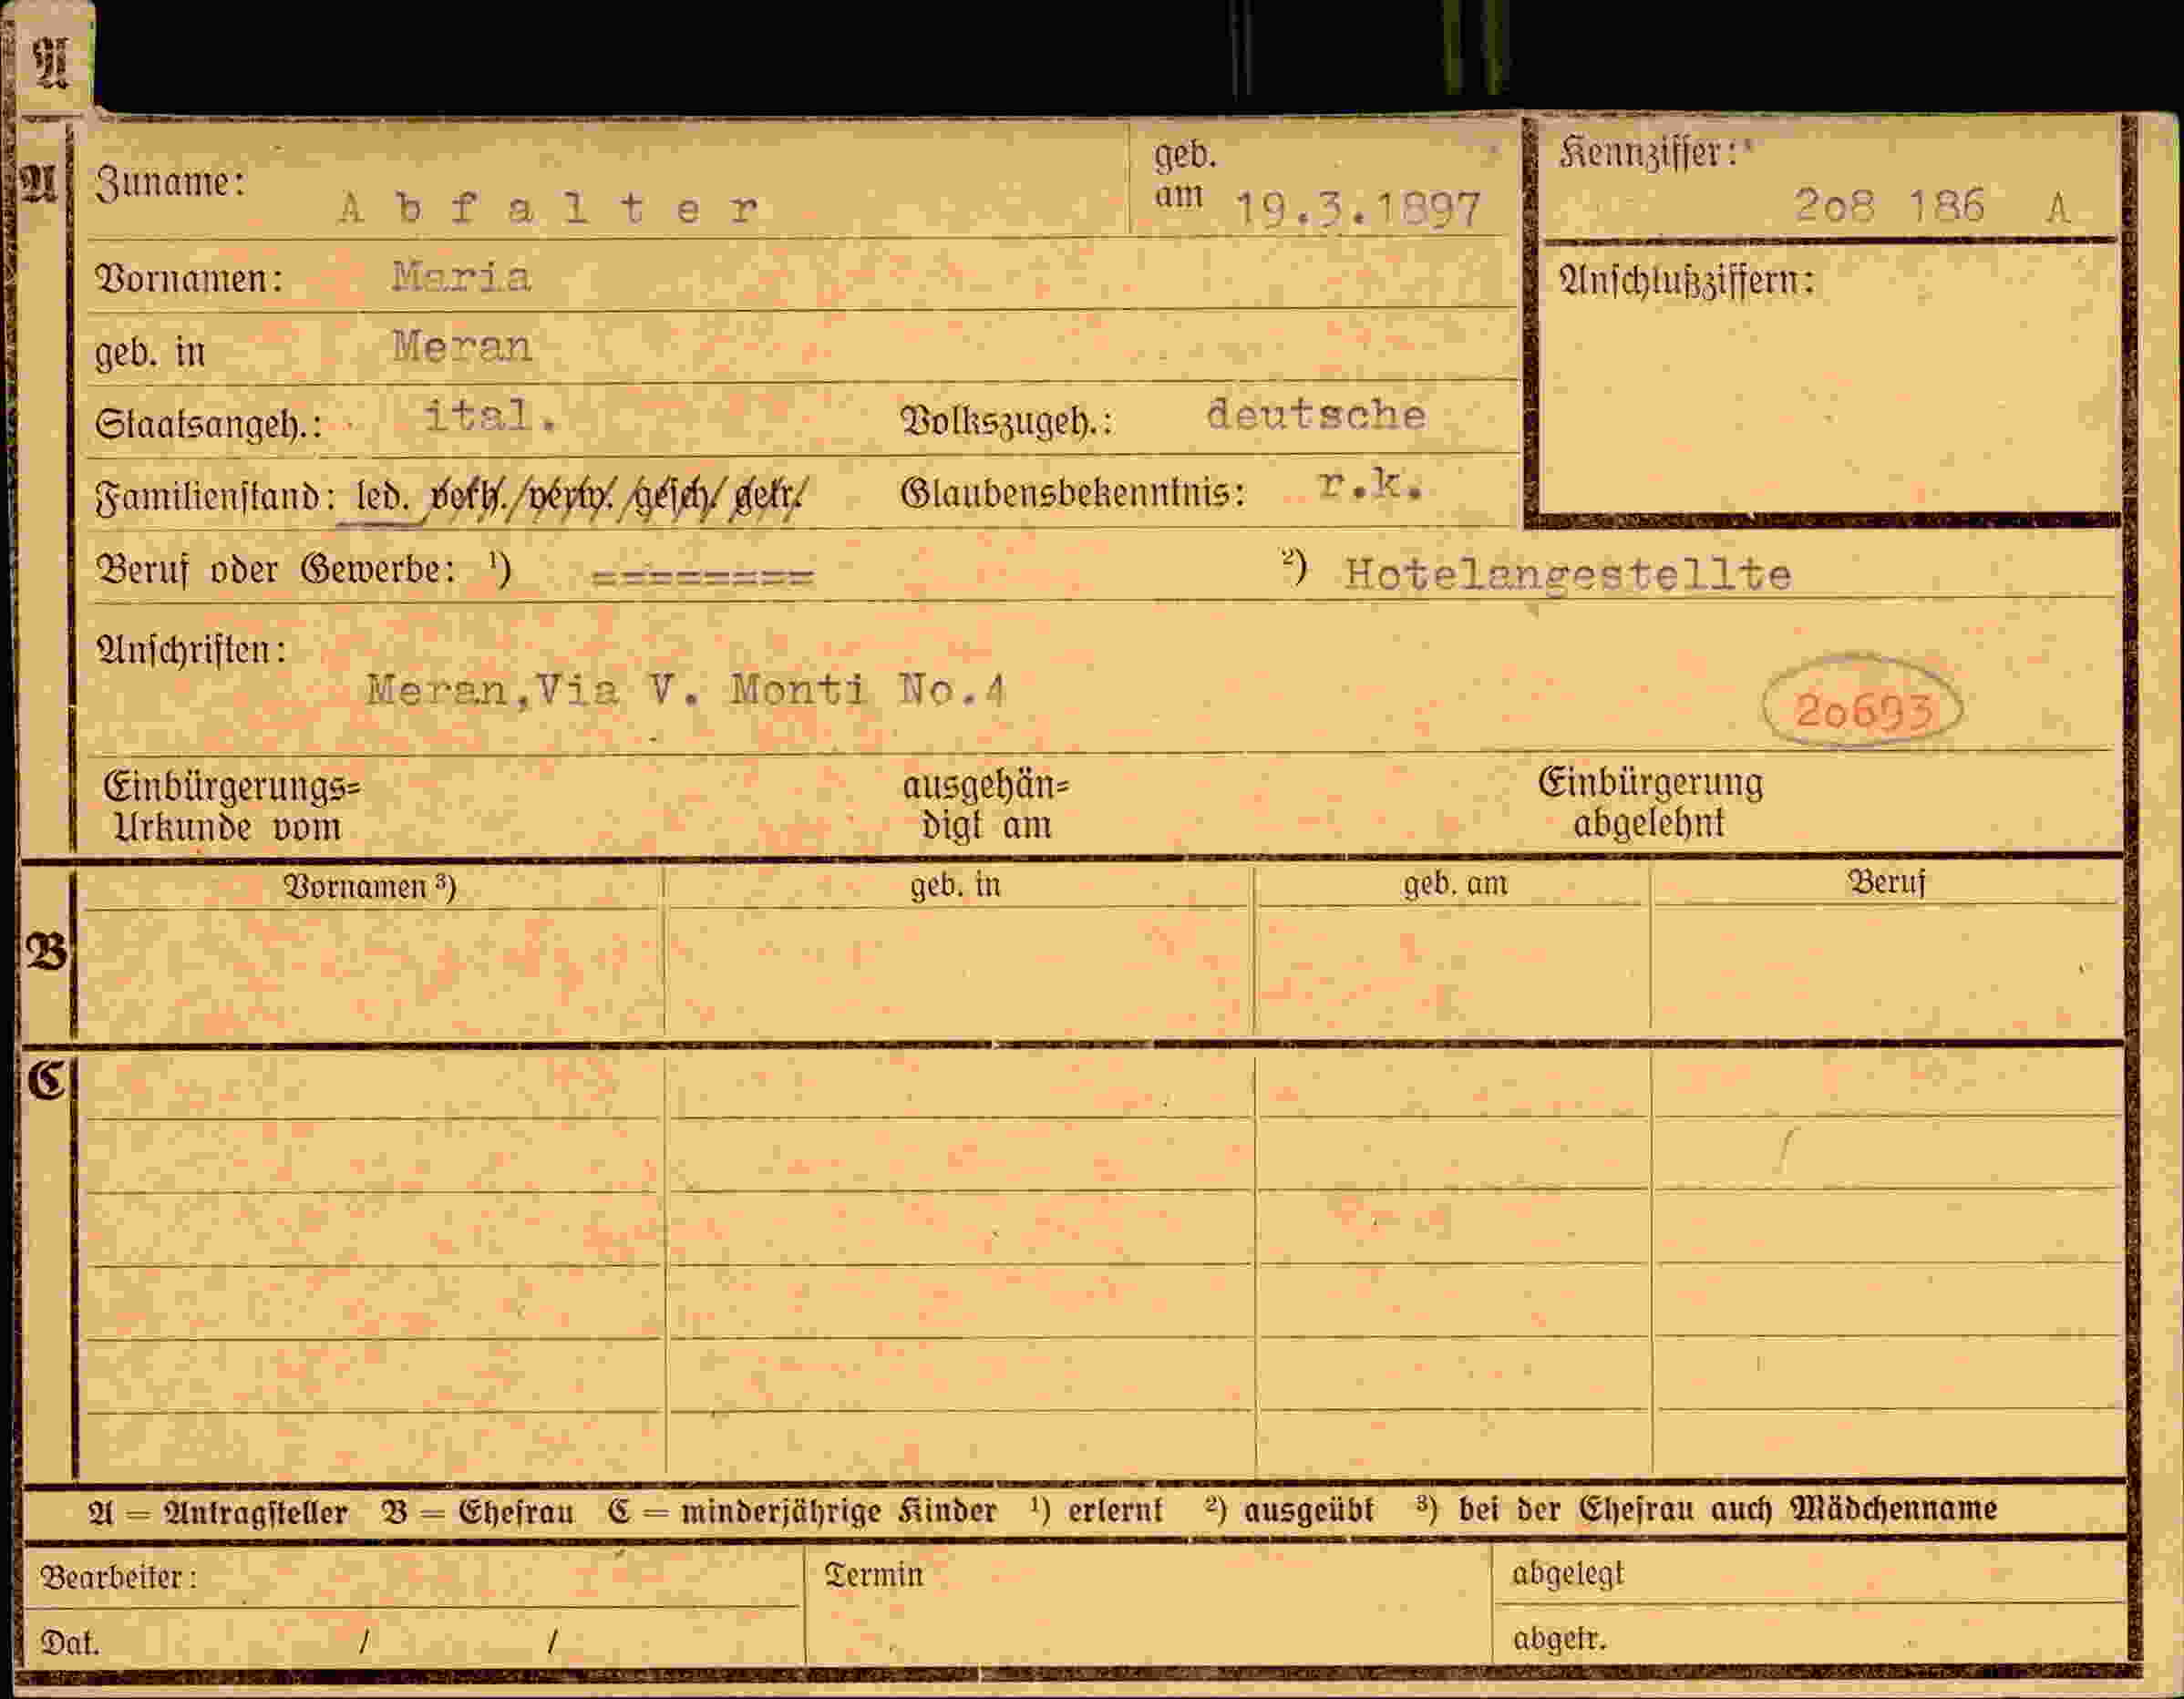 A
A
Zuname: Abfalter geb. am 19.3.1897 Kennziffer: 2o8 186 A
Vornamen: Maria Anschlußziffern:
geb. in Meran
Staatsangeh.: ital. Volkszugeh.: deutsche
Familienstand: led. verh./verw./gesch/ getr/ Glaubensbekenntnis: r.k.
Beruf oder Gewerbe: ¹) ======== ²) Hotelangestellte
Anschriften:
Meran,Via V. Monti No.4 2o693
Einbürgerungs= ausgehän= Einbürgerung
Urkunde vom digt am abgelehnt
Vornamen ³) geb. in geb. am Beruf
B
C
A = Antragsteller B = Ehefrau C = minderjährige Kinder ¹) erlernt ²) ausgeübt ³) bei der Ehefrau auch Mädchenname
Bearbeiter: Termin abgelegt
Dat. / / abgetr.